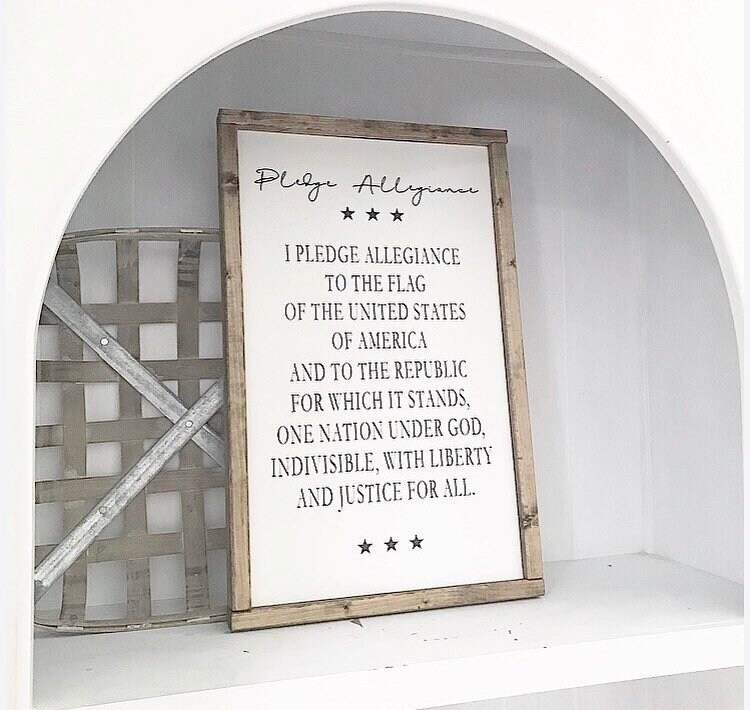 Pledge Allegiance
I PLEDGE ALLEGIANCE
TO THE FLAG
OF THE UNITED STATES
OF AMERICA
AND TO THE REPUBLIC
FOR WHICH IT STANDS,
ONE NATION UNDER GOD,
INDIVISIBLE, WITH LIBERTY
AND JUSTICE FOR ALL.